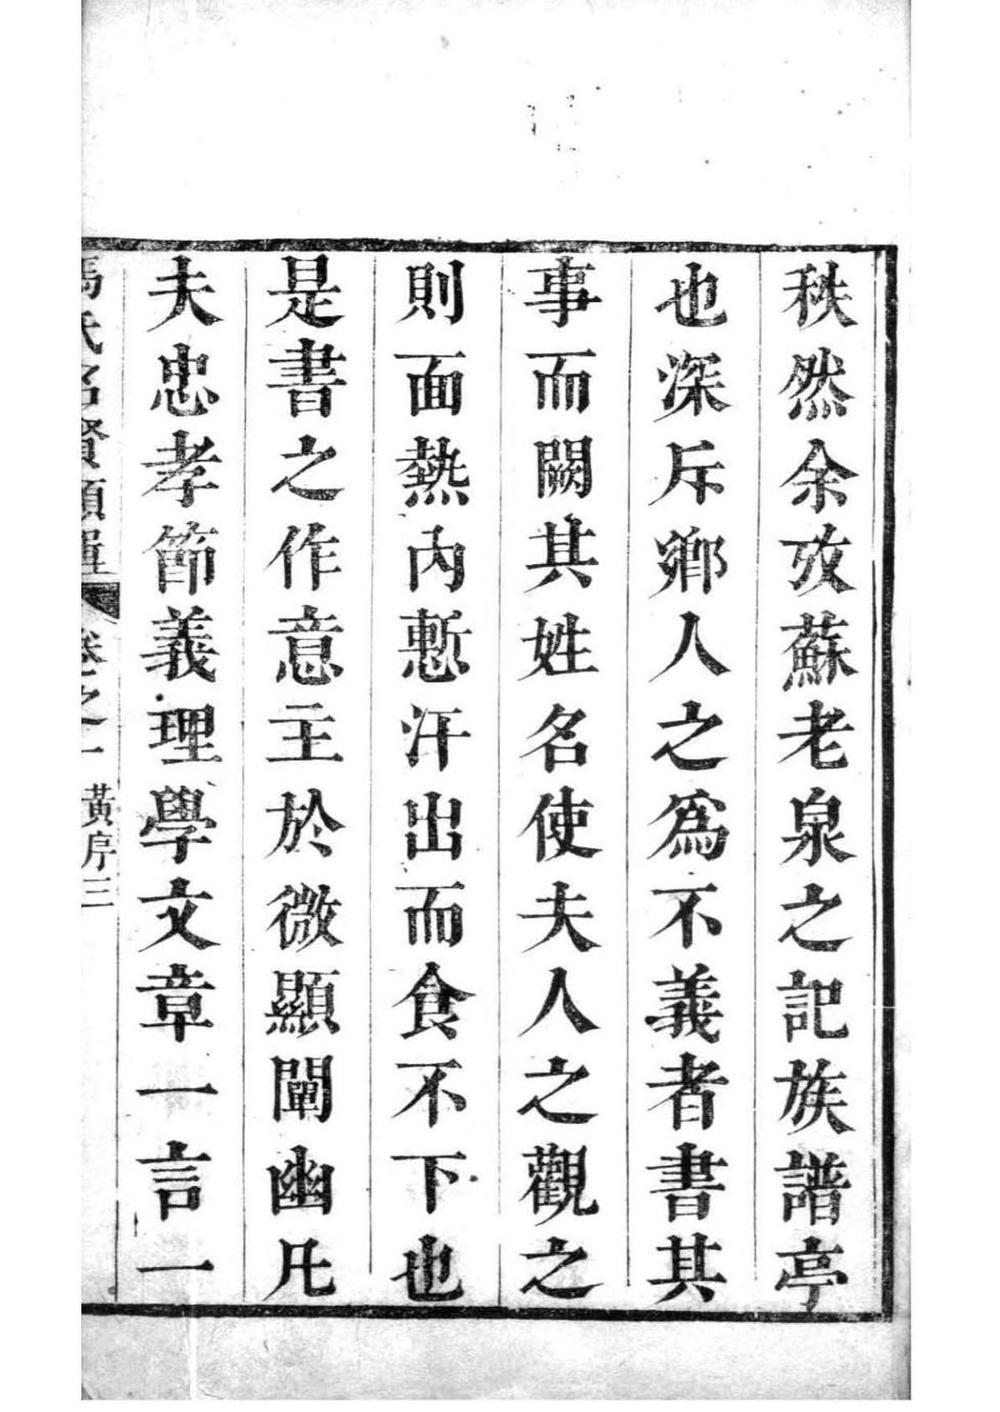 秩然余攷蘇老泉之記族譜亭
也深斥鄉人之爲不義者書其
事而闕其姓名使夫人之觀之
則面熱內慙汗出而食不下也
是書之作意主於微顯闡幽凡
夫忠孝節義理學文章一言一
馮氏名賢類輯 卷之一 黃序 三